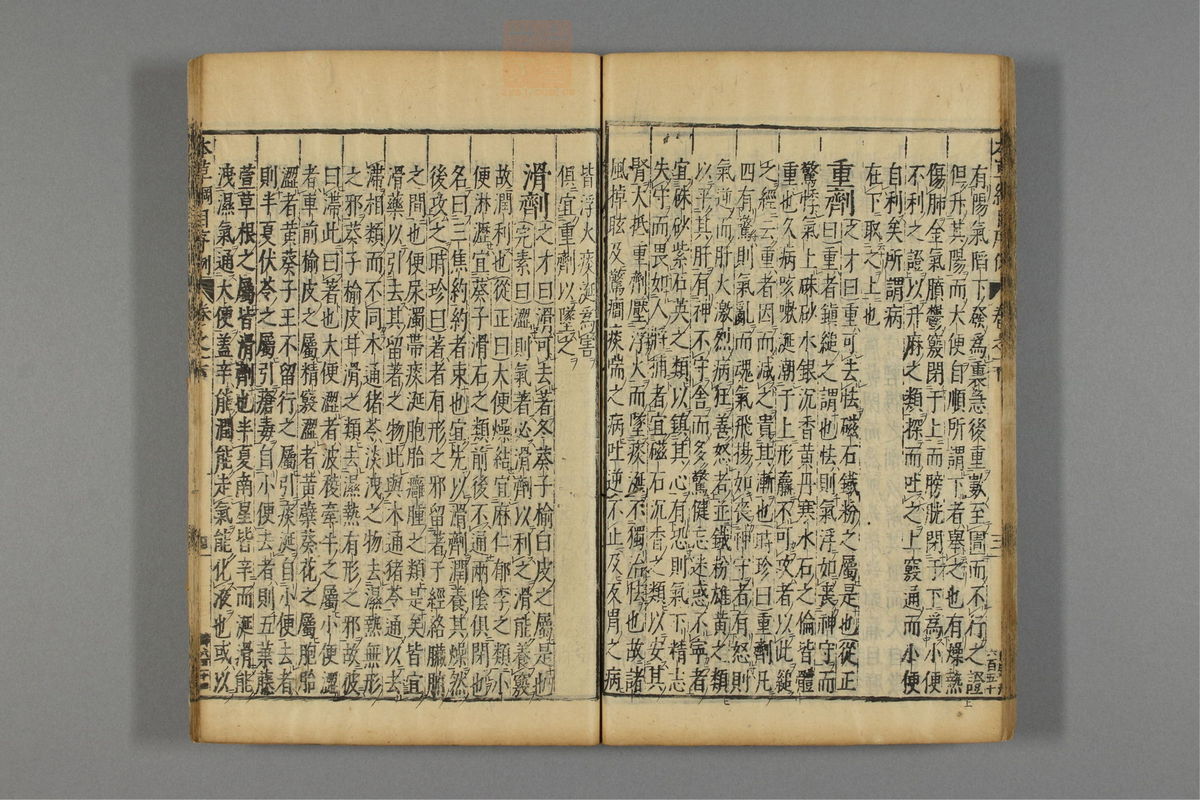 有陽氣陷下發為裏急後重數至圊而不行之證
但升其陽而大便自順所謂下者舉之也有燥熱
傷肺金氣膹鬱竅閉于上而膀胱閉于下為小便
不利之證以升麻之類探而吐之上竅通而小便
自利矣所謂病
在下取之上也
重劑之才曰重可去怯磁石鐵粉之屬是也從正
曰重者鎮縋之謂也怯則氣浮如喪神守而
驚悸氣上硃砂水銀沉香黃丹寒水石之倫皆體
重也久病咳嗽涎潮于上形羸不可攻者以此縋
之經云重者因而減之貴其漸也時珍曰重劑凡
四有驚則氣亂而魂氣飛揚如喪神守者有怒則
氣逆而肝火激烈病狂善怒者並鐵粉雄黃之類
以平其肝有神不守舍而多驚健忘迷惑不寧者
宜硃砂紫石英之類以鎮其心有恐則氣下精志
失守而畏如人將捕者宜磁石沉香之類以安其
腎大抵重劑壓浮火而墜痰涎不獨治怯也故諸
風掉眩及驚癇痰喘之病吐逆不止及反胃之病
皆浮火痰涎為害
俱宜重劑以墜之
滑劑之才曰滑可去著冬葵子榆白皮之屬是也
完素曰澀則氣著必滑劑以利之滑能養竅
故潤利也從正曰大便燥結宜麻仁郁李之類小
便淋瀝宜葵子滑石之類前後不通兩陰俱閉也
名曰三焦約約者束也宜先以滑劑潤養其燥然
後攻之時珍曰著者有形之邪留著于經絡臟腑
之間也便尿濁帶痰涎胞胎癰腫之類是矣皆宜
滑藥以引去其留著之物此與木通猪苓通以去
滯相類而不同木通猪苓淡洩之物去濕熱無形
之邪葵子榆皮甘滑之類去濕熱有形之邪故彼
曰滯此曰著也大便澀者波稜牽牛之屬小便澀
者車前榆皮之屬精竅澀者黃蘗葵花之屬胞胎
澀者黃葵子王不留行之屬引痰涎自小便去者
則半夏伏苓之屬引瘡毒自小便去者則五葉藤
萱草根之屬皆滑劑也半夏南星皆辛而涎滑能
洩濕氣通大便蓋辛能潤能走氣能化液也或以